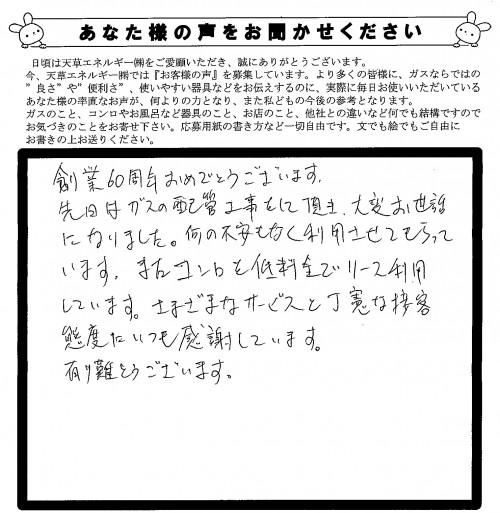 あなた様の声をお聞かせください
日頃は天草エネルギー㈱をご愛顧いただき、誠にありがとうございます。
今、天草エネルギー㈱では『お客様の声』を募集しています。より多くの皆様に、ガスならではの
”良さ”や”便利さ”、使いやすい器具などをお伝えするのに、実際に毎日お使いいただいている
あなた様の率直なお声が、何よりの力となり、また私どもの今後の参考となります。
ガスのこと、コンロやお風呂など器具のこと、お店のこと、他社との違いなど何でも結構ですので
お気づきのことをお寄せ下さい。応募用紙の書き方など一切自由です。文でも絵でもご自由に
お書きの上お送りください。
創業60周年おめでとうございます。
先日はガスの配管工事をして頂き、大変お世話
になりました。何の不安もなく利用させてもらって
います。またコンロも低料金でリース利用
しています。さまざまなサービスと丁寧な接客
態度にいつも感謝しています。
有り難とうございます。